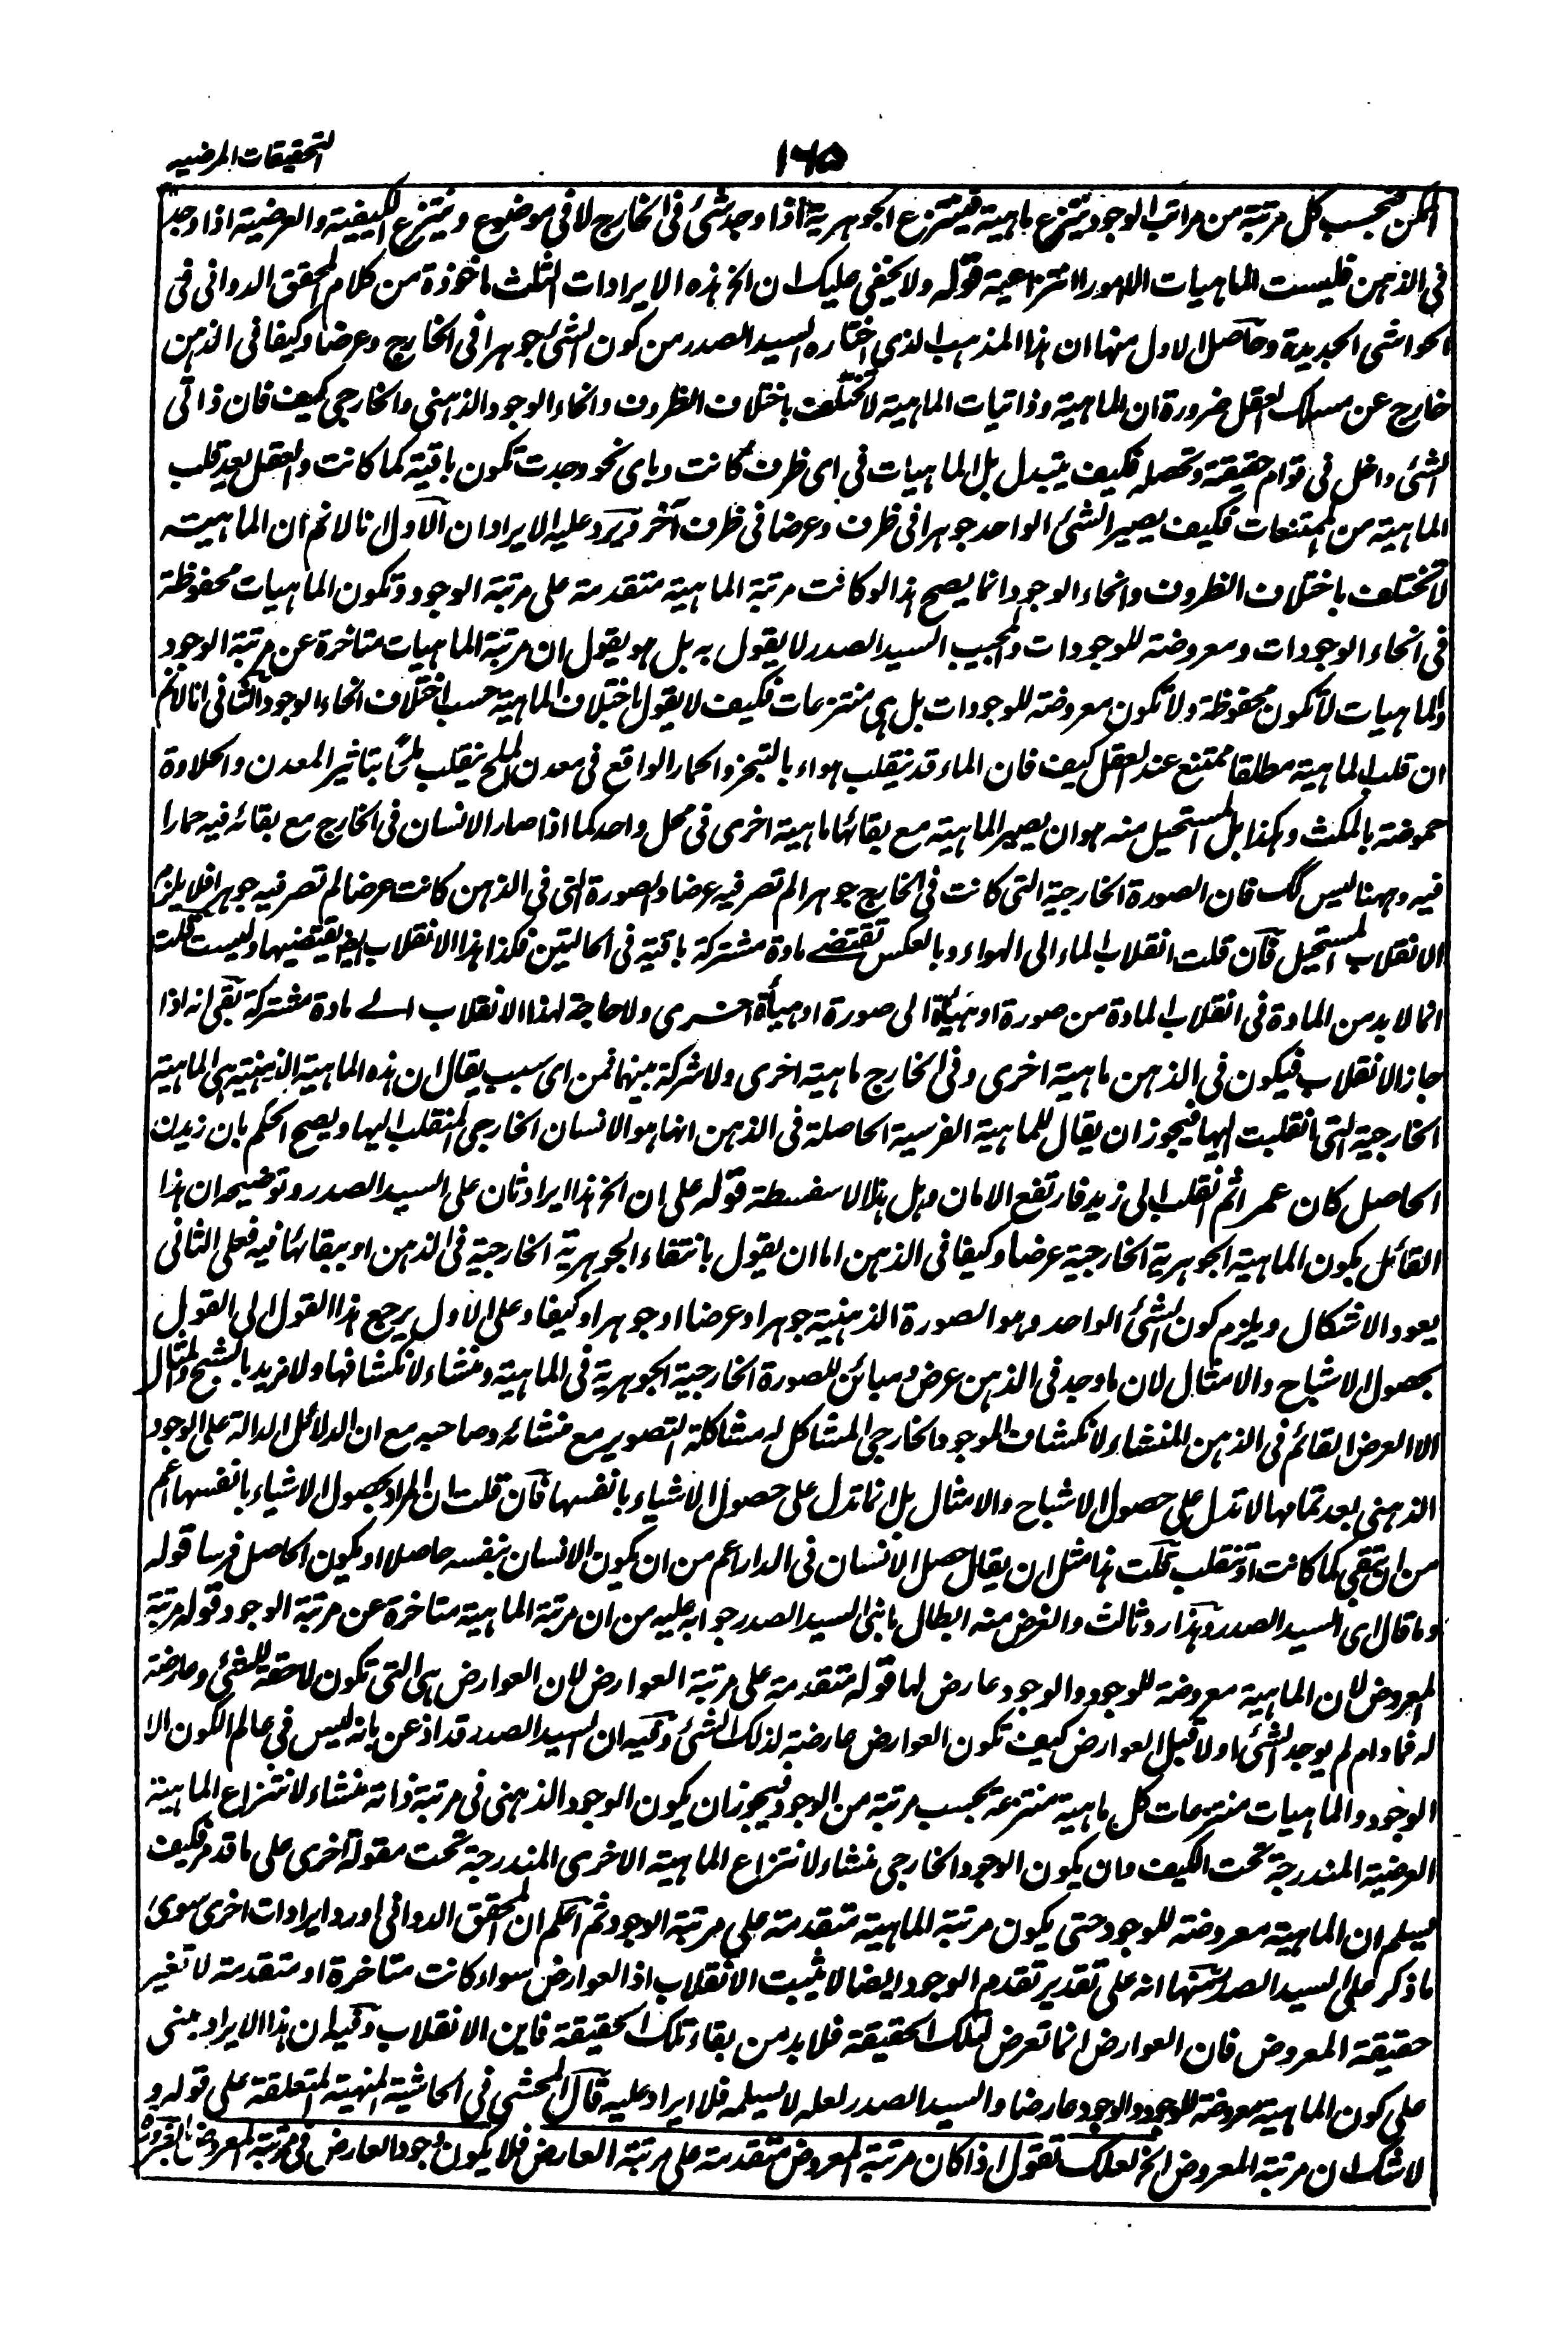 التحقیقات المرضیہ
١٦٥
الممکن فبحسب کل مرتبة من مراتب الوجود ینتزع ماہیة فینتزع الجوہریة اذا وجد شئ فی الخارج لا فی موضوع و ینتزع الکیفیة والعرضیة اذا وجد
فی الذہن فلیست الماہیات الا امورا انتزاعیة قولہ ولا یخفی علیک ان الخ ہذہ الایرادات الثلث ماخوذة من کلام المحقق الدوانی فی
الحواشی الجدیدة وحاصل الاول منہا ان ہذا المذہب الذی اختارہ السید الصدر من کون الشئ جوہرا فی الخارج وعرضا وکیفا فی الذہن
خارج عن مسلک العقل ضرورة ان الماہیة وذاتیات الماہیة لا تختلف باختلاف الظروف وانحاء الوجود الذہنی والخارجی کیف فان ذاتی
الشئ داخل فی قوام حقیقتہ وتحصلہ فکیف یتبدل بل الماہیات فی ای ظرف کانت وبای نحو وجدت تکون باقیة کما کانت والعقل یعد قلب
الماہیة من الممتنعات فکیف یصیر الشئ الواحد جوہرا فی ظرف وعرضا فی ظرف آخر ویرد علیہ الایرادان الاول انا لا نم ان الماہیة
لا تختلف باختلاف الظروف وانحاء الوجود انما یصح ہذا لو کانت مرتبة الماہیة متقدمة علی مرتبة الوجود وتکون الماہیات محفوظة
فی انحاء الوجودات ومعروضة للوجودات والمجیب السید الصدر لا یقول بہ بل ہو یقول ان مرتبة الماہیات متاخرة عن مرتبة الوجود
والماہیات لا تکون محفوظة ولا تکون معروضة للوجودات بل ہی منتزعات فکیف لا یقول باختلاف الماہیة حسب اختلاف انحاء الوجود الثانی انا لا نم
ان قلب الماہیة مطلقا ممتنع عند العقل کیف فان الماء قد ینقلب ہواء بالتبخر والحمار الواقع فی معدن الملح ینقلب ملحا بتاثیر المعدن والحلاوة
حموضة بالمکث وہکذا بل المستحیل منہ ہو ان یصیر الماہیة مع بقائہا ماہیة اخری فی محل واحد کما اذا صار الانسان فی الخارج مع بقائہ فیہ حمارا
فیہ وہہنا لیس کک فان الصورة الخارجیة التی کانت فی الخارج جوہرا لم تصر فیہ عرضا والصورة التی فی الذہن کانت عرضا لم تصر فیہ جوہرا فلا یلزم
الانقلاب المستحیل فان قلت انقلاب الماء الی الہواء وبالعکس تقتضے مادة مشترکة باقیة فی الحالتین فکذا ہذا الانقلاب ایضا یقتضیہا ولیست قلت
انما لا بد من المادة فی انقلاب المادة من صورة او ہیأة الی صورة او ہیأة اخری ولا حاجة لہذا الانقلاب الے مادة مشترکة بقی انہ اذا
جاز الانقلاب فیکون فی الذہن ماہیة اخری وفی الخارج ماہیة اخری ولا شرکة بینہا فمن ای سبب یقال ان ہذہ الماہیة الذہنیة ہی الماہیة
الخارجیة التی انقلبت الیہا فیجوز ان یقال للماہیة الفرسیة الحاصلة فی الذہن انہا ہو الانسان الخارجی المنقلب الیہا ویصح الحکم بان زیدن
الحاصل کان عمرا ثم انقلب الی زید فارتفع الامان وہل ہذا الا سفسطة قولہ علی ان الخ ہذا ایراد ثان علی السید الصدر وتوضیحہ ان ہذا
القائل بکون الماہیة الجوہریة الخارجیة عرضا وکیفا فی الذہن اما ان یقول بانتفاء الجوہریة الخارجیة فی الذہن او ببقائہا فیہ فعلی الثانی
یعود الاشکال ویلزم کون الشئ الواحد وہو الصورة الذہنیة جوہرا وعرضا او جوہرا وکیفا وعلی الاول یرجع ہذا القول الی القول
بحصول الاشباح والامثال لان ما وجد فی الذہن عرض ومبائن للصورة الخارجیة الجوہریة فی الماہیة ومنشاء لانکشافہا ولا نرید بالشبح والمثال
الا العرض القائم فی الذہن المنشاء لانکشاف الموجود الخارجی المشاکل لہ مشاکلة التصویر مع منشائہ وصاحبہ مع ان الدلائل الدالة علی الوجود
الذہنی بعد تمامہا لا تدل علی حصول الاشباح والامثال بل انما تدل علی حصول الاشیاء بانفسہا فان قلت ان المراد بحصول الاشیاء بانفسہا اعم
من ان تبقی کما کانت او تنقلب قلت ہذا مثل ان یقال حصل الانسان فی الدار اعم من ان یکون الانسان بنفسہ حاصلا او یکون الحاصل فرسا قولہ
وما قال ای السید الصدر وہذا رد ثالث والغرض منہ ابطال ما بنی السید الصدر جوابہ علیہ من ان مرتبة الماہیة متاخرة عن مرتبة الوجود قولہ مرتبة
المعروض لان الماہیة معروضة للوجود والوجود عارض لہا قولہ متقدمة علی مرتبة العوارض لان العوارض ہی التی تکون لاحقة للشئ وعارضة
لہ فما دام لم یوجد الشئ اولا قبل العوارض کیف تکون العوارض عارضة لذلک الشئ وفیہ ان السید الصدر قد اذعن بانہ لیس فی عالم الکون الا
الوجود والماہیات منتزعات کل ماہیة منتزعة بحسب مرتبة من الوجود فیجوز ان یکون الوجود الذہنی فی مرتبة ذاتہ منشاء لانتزاع الماہیة
العرضیة المندرجة تحت الکیف وان یکون الوجود الخارجی منشاء لانتزاع الماہیة الاخری المندرجة تحت مقولة اخری علی ما قد مر فکیف
یسلم ان الماہیة معروضة للوجود حتی یکون مرتبة الماہیة متقدمة علی مرتبة الوجود ثم اعلم ان المحقق الدوانی اورد ایرادات اخری سوی
ما ذکر علی السید الصدر منہا انہ علی تقدیر تقدم الوجود ایضا لا یثبت الانقلاب اذ العوارض سواء کانت متاخرة او متقدمة لا تغیر
حقیقة المعروض فان العوارض انما تعرض لتلک الحقیقة فلا بد من بقاء تلک الحقیقة فاین الانقلاب وفیہ ان ہذا الایراد مبنی
علی کون الماہیة معروضة للوجود والوجود عارضا والسید الصدر لعلہ لا یسلمہ فلا ایراد علیہ قال المحشی فی الحاشیة المنہیة المتعلقة علی قولہ و
لا شک ان مرتبة المعروض الخ لعلک تقول اذا کان مرتبة المعروض متقدمة علی مرتبة العارض فلا یکون وجود العارض فی مرتبة المعروض بالضرورة